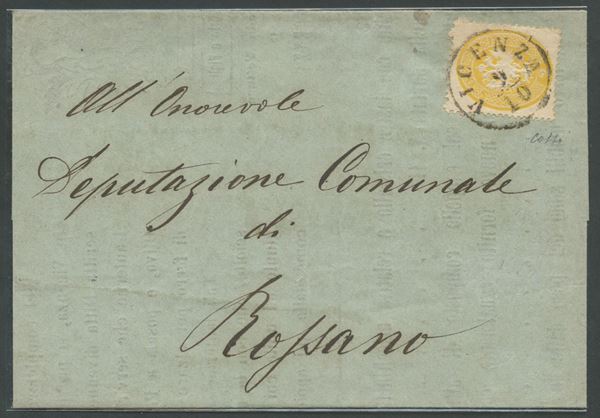 VICENZA
9/10
All' Onorevole
Deputazione Comunale
di
Rossano